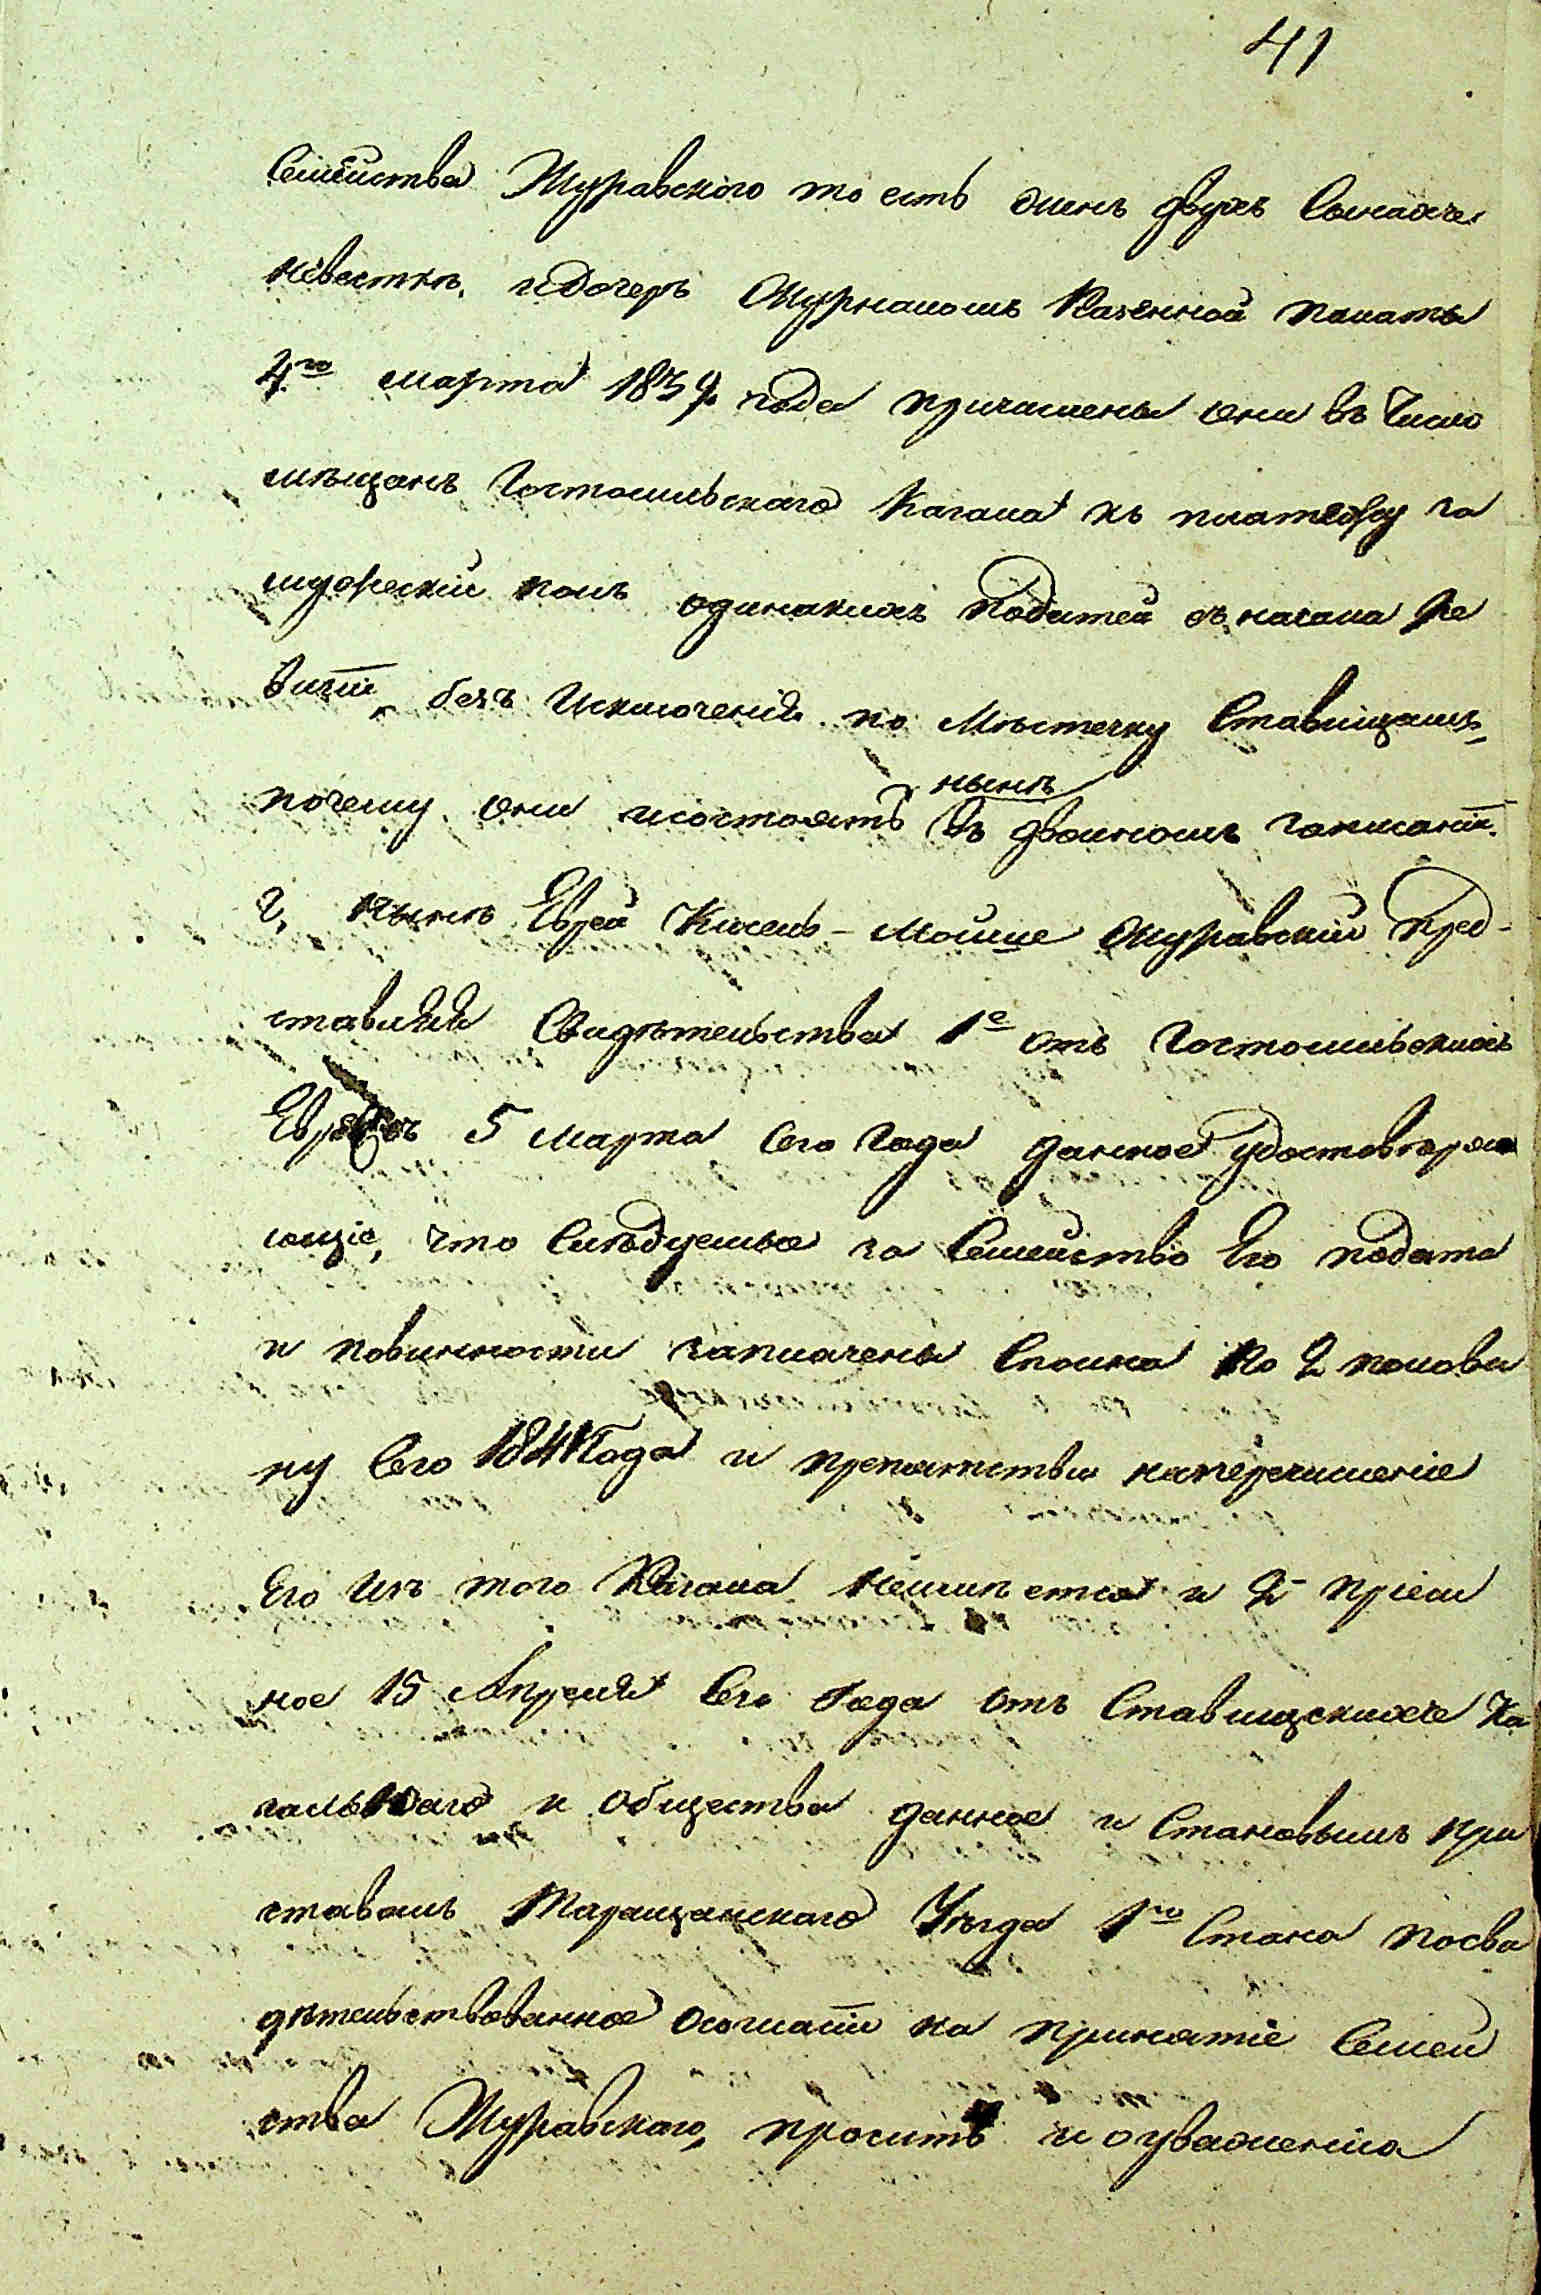 41
Семейства Журавского то есть жены двухъ Сынахъ
невестки, и дочерь Журналомъ Казенной палаты
4го марта 1839 года причислены они въ Число
мѣщанъ Гостомельскаго Кагала къ платежу за
мужескій полъ одинакихъ податей съ начала Ре
визіи, безъ Исключенія по Мѣстечку Ставищамъ,
почему они и состоятъ нынѣ въ двойномъ записаніи.
2, нынѣ Еврей Кисель-Мойше Журавскій пред-
ставляя Свидѣтельства 1е отъ Гостомельскихъ
Евреевъ 5 марта сего Года данное удостовѣря
ющіе, что Слѣдуемые за Семейство Его подати
и повинности заплачены Сполна по 2 полови
ну Сего 1841 Года и препятствія на перечисленіе
Его Изъ того Кагала неимѣется и 2е
ное 15 Апреля Сего Года отъ Ставищскихъ Ка
гальнаго и Общества данное и Становымъ при
ставомъ Таращанскаго Уѣзда 1го Стана посви
дѣтельствованное о согласіи на принятіе Семей
ства Журавскаго, проситъ и о уваженіи